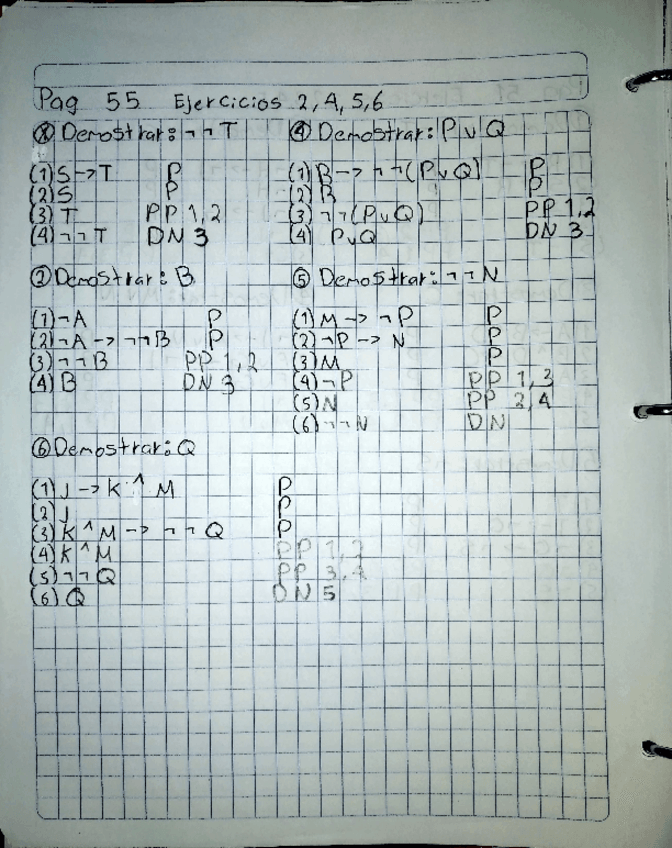 Pag 55 Ejercicios 2,4,5,6
① Demostrar: ¬¬T
(1) S→T P
(2) S P
(3) T PP 1,2
(4) ¬¬T DN 3
④ Demostrar: P∨Q
(1) R→¬¬(P∨Q) P
(2) R P
(3) ¬¬(P∨Q) PP 1,2
(4) P∨Q DN 3
② Demostrar: B
(1) ¬A P
(2) ¬A→¬¬B P
(3) ¬¬B PP 1,2
(4) B DN 3
⑤ Demostrar: ¬¬N
(1) M→¬P P
(2) ¬P→N P
(3) M P
(4) ¬P PP 1,3
(5) N PP 2,4
(6) ¬¬N DN
⑥ Demostrar: Q
(1) J→K^M P
(2) J P
(3) K^M→¬¬Q P
(4) K^M PP 1,2
(5) ¬¬Q PP 3,4
(6) Q DN 5